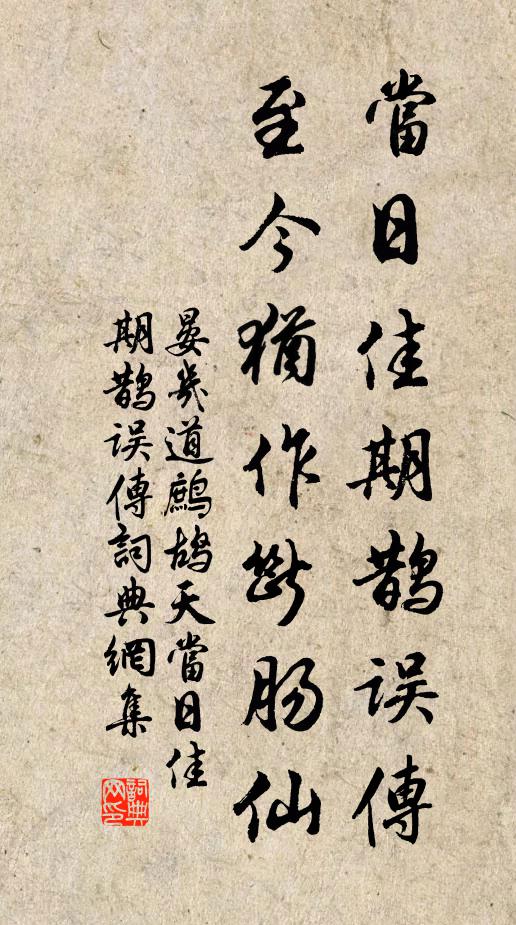 當日佳期鵲误傳
至今猶作斷肠仙
晏几道鷓鴣天當日佳
期鵲误傳詞典網集
詞典网印